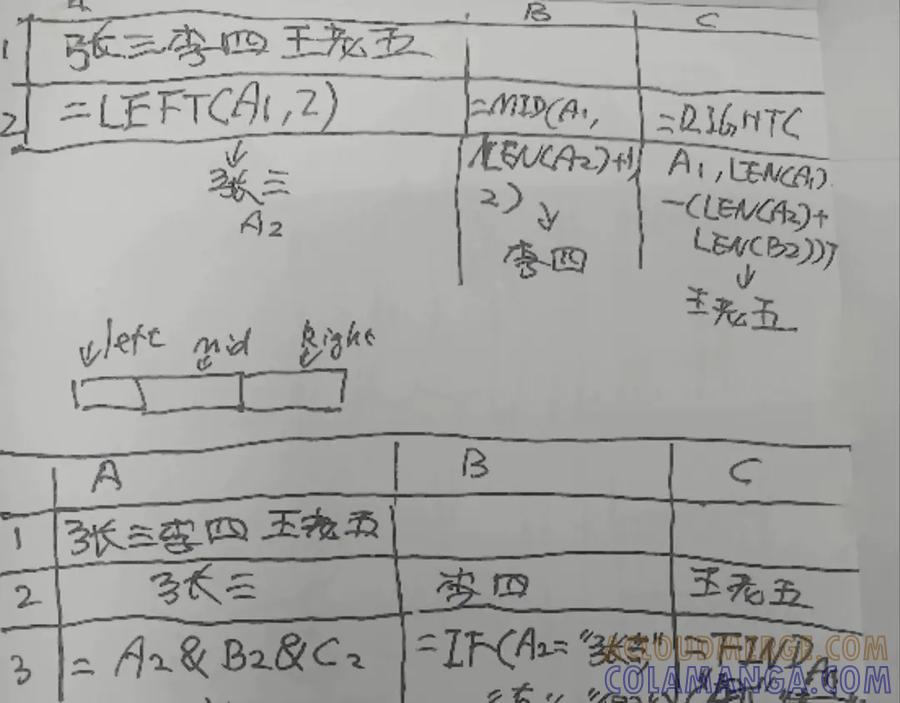 A B C
1 张三李四王老五
2 =LEFT(A1,2) =MID(A1, =RIGHT(
LEN(A2)+1, A1,LEN(A1)
2) -(LEN(A2)+
LEN(B2)))
张三 李四 王老五
A2
left mid Right
A B C
1 张三李四王老五
2 张三 李四 王老五
3 =A2&B2&C2 =IF(A2="张三" =FIND
COLAMANGA.COM